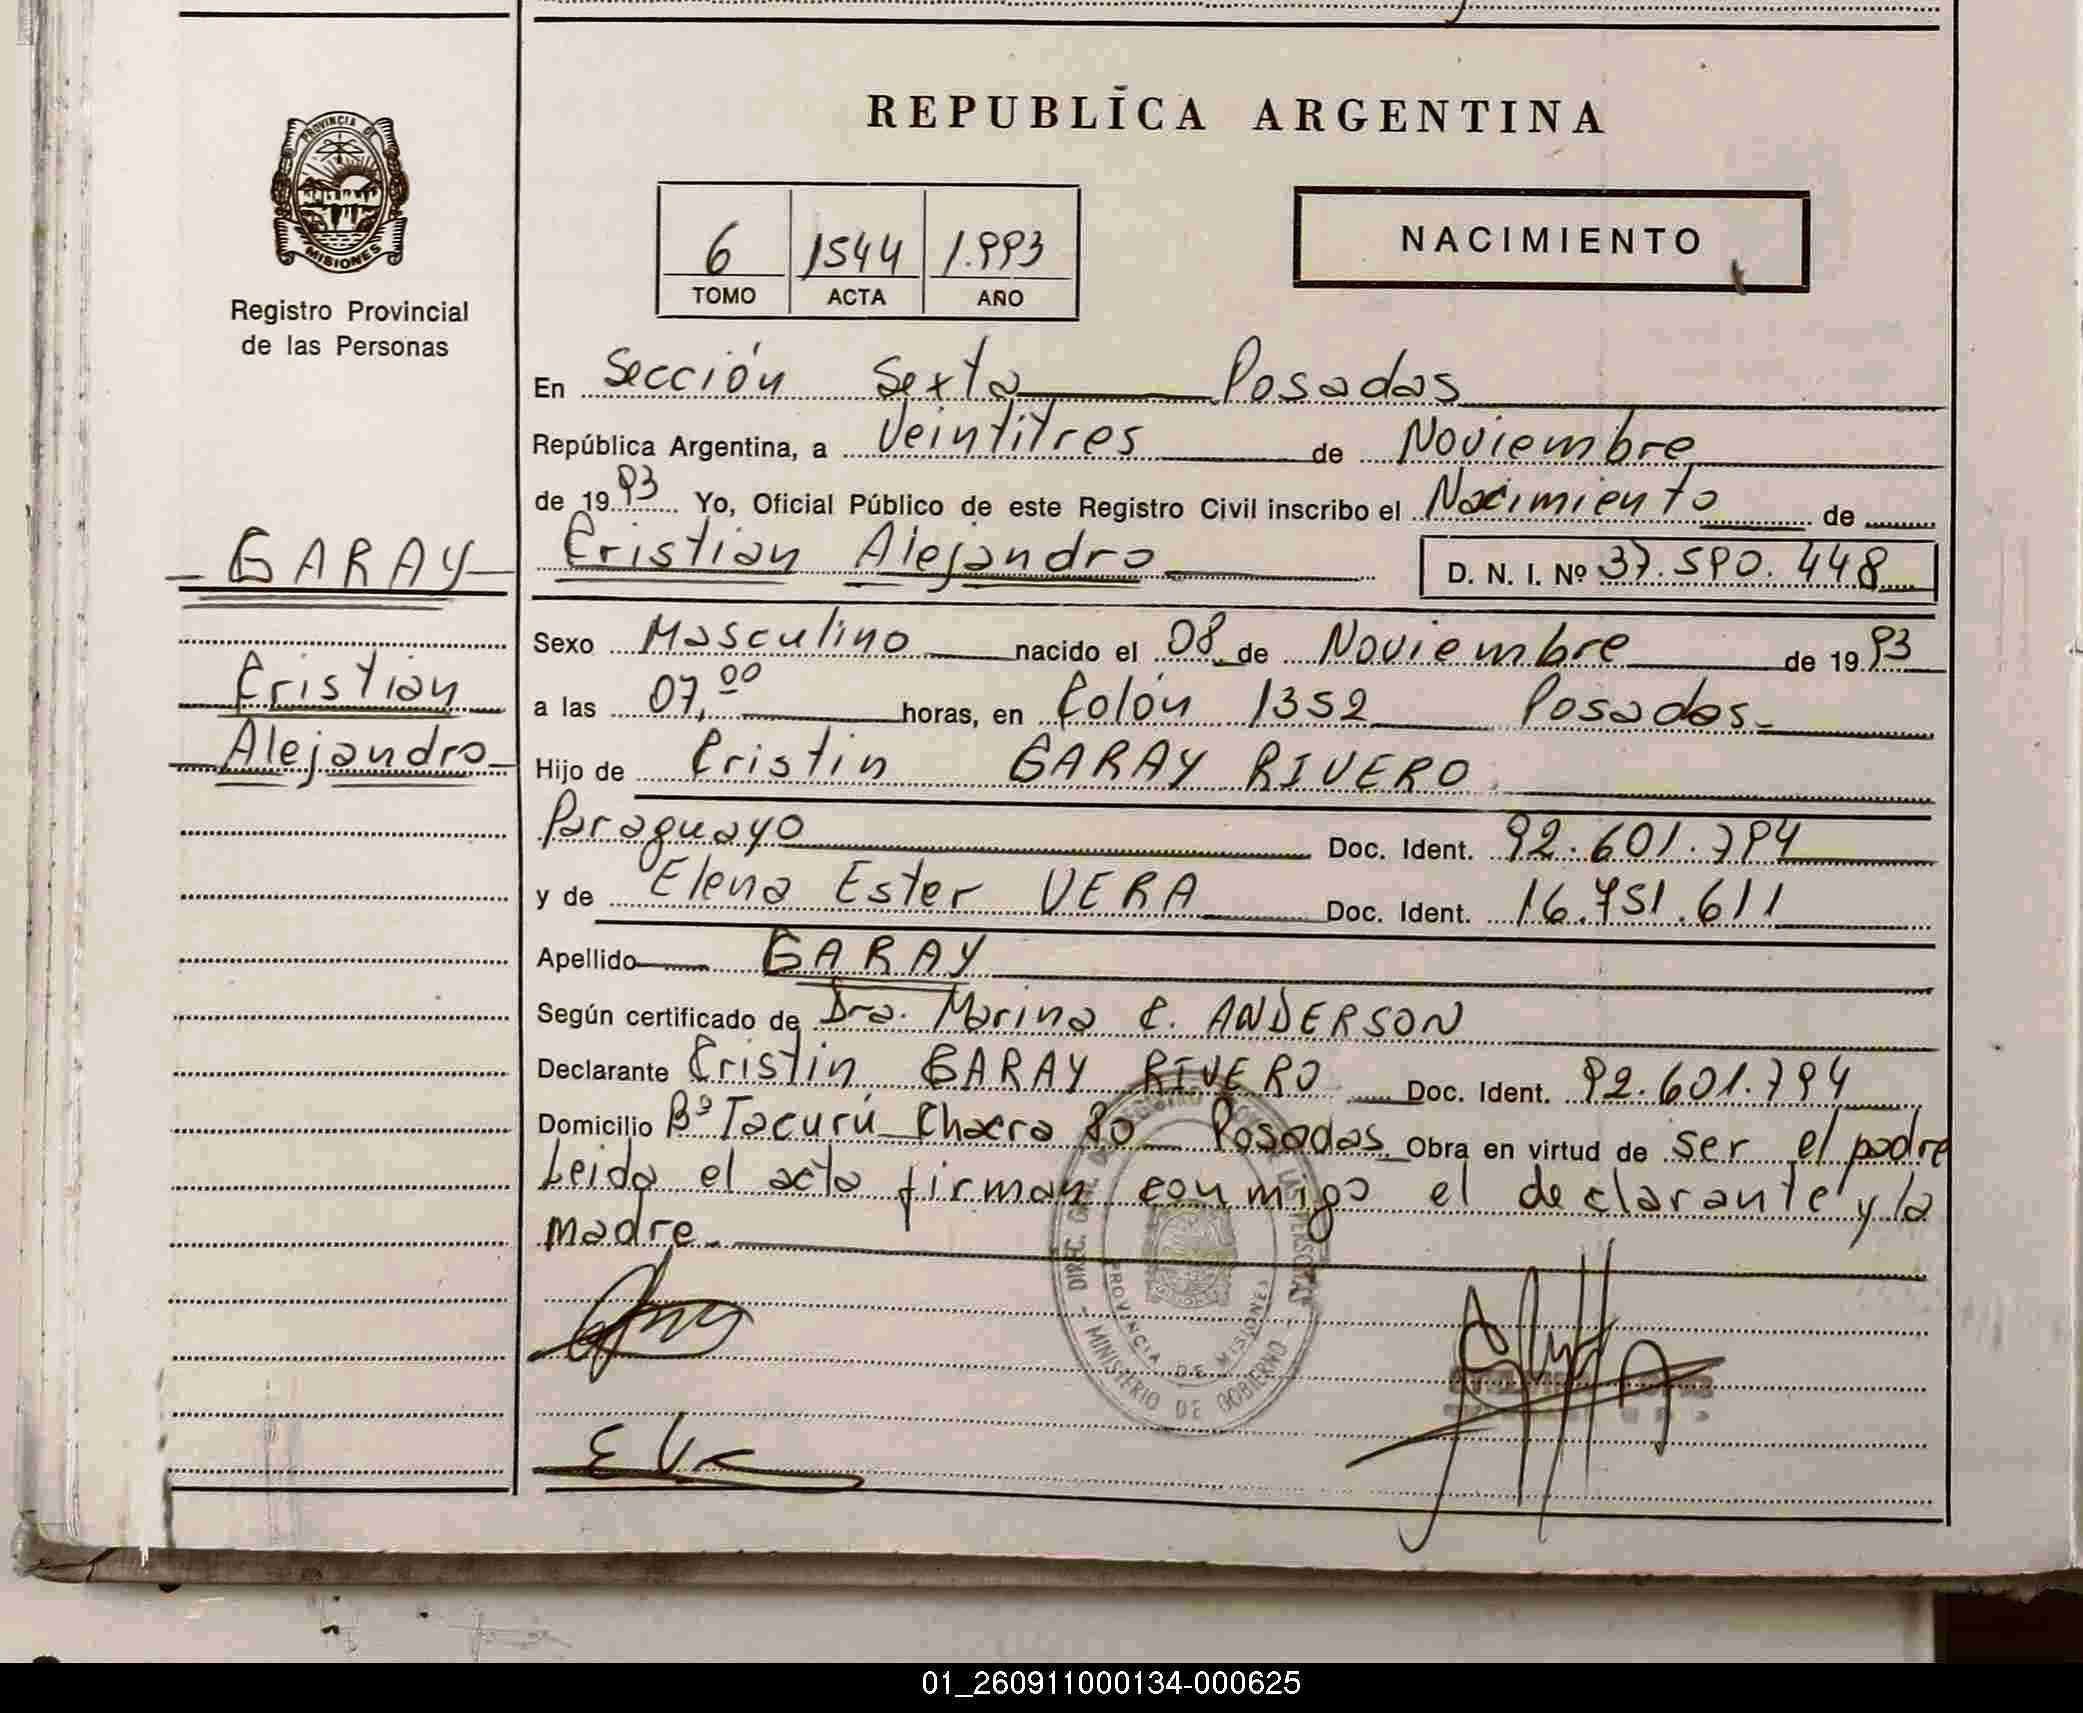 REPUBLICA ARGENTINA
PROVINCIA DE
MISIONES
Registro Provincial
de las Personas
6 1544 1.993
TOMO ACTA AÑO
NACIMIENTO
En Sección Sexta Posadas
República Argentina, a Veintitres de Noviembre
de 1993 Yo, Oficial Público de este Registro Civil inscribo el Nacimiento de
GARAY
Cristian Alejandro D. N. I. Nº 37.590.448
Cristian
Alejandro
Sexo Masculino nacido el 08 de Noviembre de 1993
a las 07,00 horas, en Colón 1352 Posadas.
Hijo de Cristin GARAY RIVERO
Paraguayo Doc. Ident. 92.601.794
y de Elena Ester VERA Doc. Ident. 16.751.611
Apellido GARAY
Según certificado de Dra. Marina C. ANDERSON
Declarante Cristin GARAY RIVERO Doc. Ident. 92.601.794
Domicilio Bº Tacurú Chacra 80 Posadas. Obra en virtud de ser el padre
Leida el acta firman conmigo el declarante y la
madre.
PROVINCIA DE MISIONES
MINISTERIO DE GOBIERNO
01_260911000134-000625